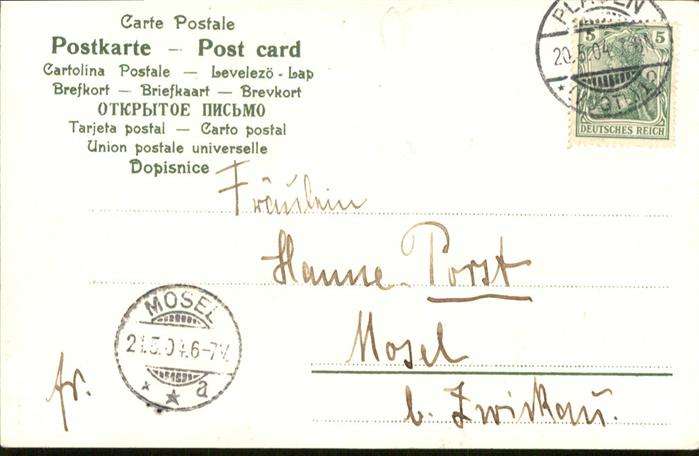 Carte Postale
Postkarte — Post card
Cartolina Postale — Levelező-Lap
Brefkort — Briefkaart — Brevkort
ОТКРЫТОЕ ПИСЬМО
Tarjeta postal — Carto postal
Union postale universelle
Dopisnice
PLAUEN
20.5.04
(VOGTL.)
5 5
DEUTSCHES REICH
Fräulein
Hanne Porst
MOSEL
21.5.04.6-7V.
a
Mosel
fr.
b. Zwickau.